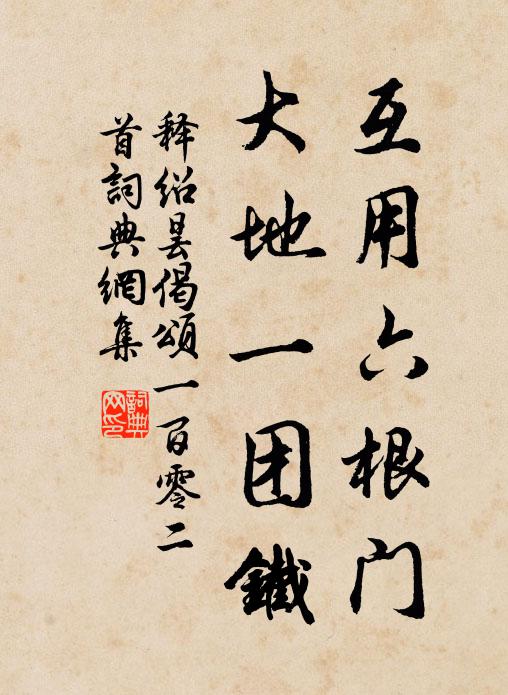 互用六根门
大地一团鐵
释绍昙偈頌一百零二
首詞典網集
詞典网印